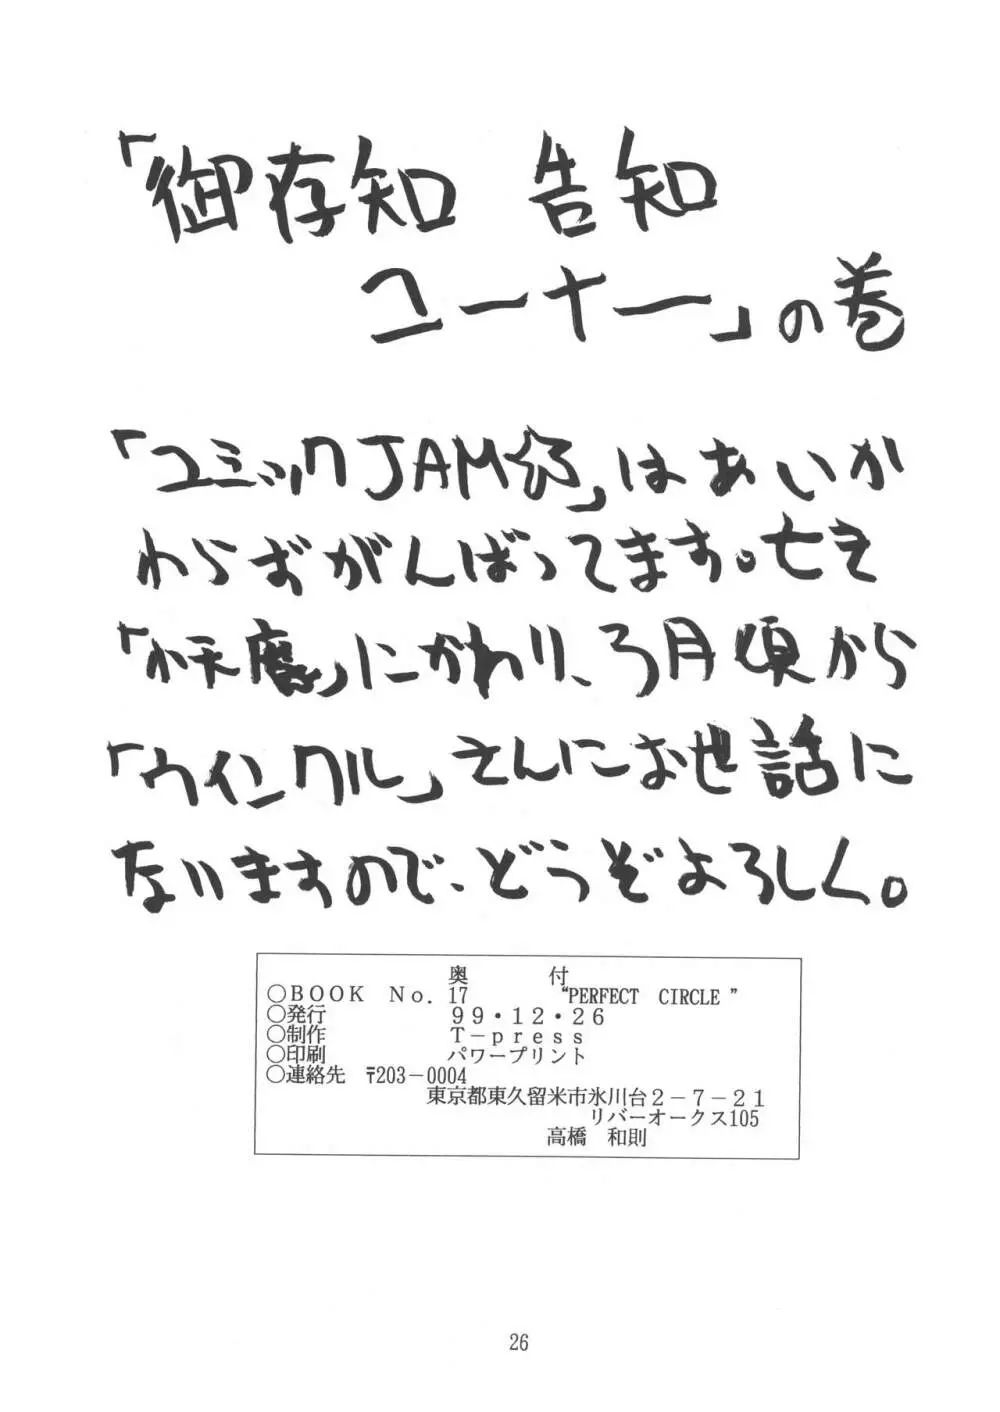 「御存知 告知
コーナー」の巻
「コミックJAM☆」はあいか
わらずがんばってます。亡き
「小天魔」にかわり、3月頃から
「ウインクル」さんにお世話に
ないますので、どうぞよろしく。
奥　　　付
○ＢＯＯＫ　Ｎｏ．17　　　“PERFECT　CIRCLE ”
○発行　　　９９・１２・２６
○制作　　　Ｔ－ｐｒｅｓｓ
○印刷　　　パワープリント
○連絡先　〒203－0004
東京都東久留米市氷川台２－７－２１
リバーオークス105
高橋　和則
26